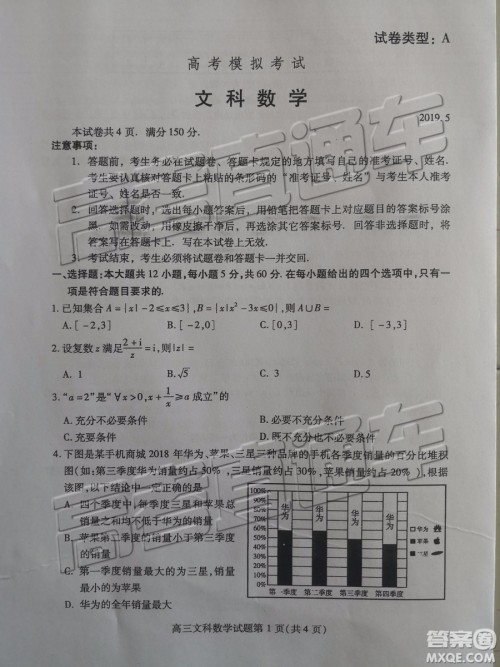 试卷类型：A
高考模拟考试
文科数学
2019.5
本试卷共4页．满分150分．
注意事项：
1．答题前，考生务必在试题卷、答题卡规定的地方填写自己的准考证号、姓名．
考生要认真核对答题卡上粘贴的条形码的“准考证号、姓名”与考生本人准考
证号、姓名是否一致．
2．回答选择题时，选出每小题答案后，用铅笔把答题卡上对应题目的答案标号涂
黑．如需改动，用橡皮擦干净后，再选涂其它答案标号．回答非选择题时，将
答案写在答题卡上．写在本试卷上无效．
3．考试结束，考生必须将试题卷和答题卡一并交回．
一、选择题：本大题共12小题，每小题5分，共60分．在每小题给出的四个选项中，只有一
项是符合题目要求的．
1. 已知集合A={x|-2≤x≤3},B={x|x²-3x≤0},则A∪B=
A. [-2,3] B. [-2,0] C. [0,3] D. [-3,3]
2. 设复数z满足(2+i)/z=i,则|z|=
A. 1 B. √5 C. 3 D. 5
3. “a=2”是“∀x>0,x+1/x≥a成立”的
A. 充分不必要条件 B. 必要不充分条件
C. 充要条件 D. 既不充分也不必要条件
4. 下图是某手机商城2018年华为、苹果、三星三种品牌的手机各季度销量的百分比堆积
图(如:第三季度华为销量约占50%，三星销量约占30%，苹果销量约占20%)．根据
该图，以下结论中一定正确的是
A. 四个季度中，每季度三星和苹果总
销量之和均不低于华为的销量
B. 苹果第二季度的销量小于第三季度
的销量
C. 第一季度销量最大的为三星，销
量最小的为苹果
D. 华为的全年销量最大
100%
90%
80%
70%
60%
50%
40%
30%
20%
10%
0%
华为
华为
华为
华为
第一季度 第二季度 第三季度 第四季度
华为
苹果
三星
高三文科数学试题第1页(共4页)
高三直通车
高三直通车
高三直通车
答案圈